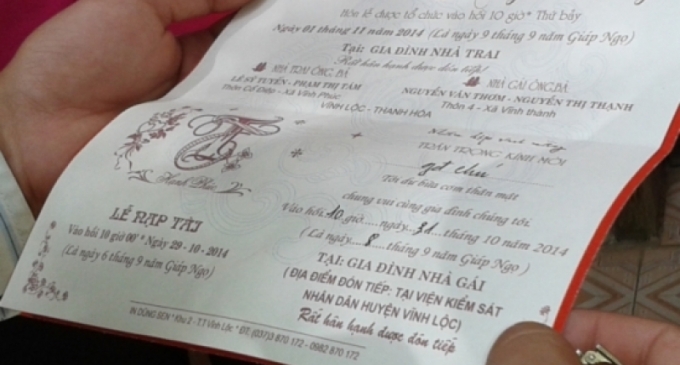 Hôn lễ được tổ chức vào hồi 10 giờ * Thứ bảy
Ngày 01 tháng 11 năm 2014 (Là ngày 9 tháng 9 năm Giáp Ngọ)
Tại: GIA ĐÌNH NHÀ TRAI
Rất hân hạnh được đón tiếp!
NHÀ TRAI ÔNG, BÀ
LÊ SỸ TUYẾN - PHẠM THỊ TÂM
Thôn Cổ Điệp - Xã Vĩnh Phúc
NHÀ GÁI ÔNG, BÀ
NGUYỄN VĂN THƠM - NGUYỄN THỊ THẠNH
Thôn 4 - Xã Vĩnh thành
VĨNH LỘC - THANH HÓA
T
Hạnh Phúc
LỄ RẠP TẠI
Vào hồi 10 giờ 00' * Ngày 29 - 10 - 2014
(Là ngày 6 tháng 9 năm Giáp Ngọ)
TRÂN TRỌNG KÍNH MỜI
Tới dự bữa cơm thân mật
chung vui cùng gia đình chúng tôi.
Vào hồi 10 giờ.....ngày...31....tháng 10 năm 2014
(Là ngày....8....tháng 9 năm Giáp Ngọ)
TẠI: GIA ĐÌNH NHÀ GÁI
(ĐỊA ĐIỂM ĐÓN TIẾP: TẠI VIỆN KIỂM SÁT
NHÂN DÂN HUYỆN VĨNH LỘC)
Rất hân hạnh được đón tiếp
IN DŨNG BEN * Khu 2 - TT Vĩnh Lộc * ĐT: (037)3 870 172 - 0982 870 172